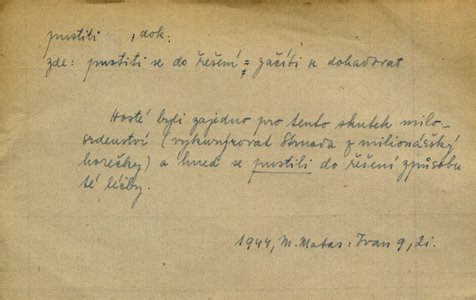 pustiti , dok.
zde: pustiti se do řešení = začíti se dohadovat
Hosté byli zajedno pro tento skutek milo-
srdenství (vykurýrovat Strnada z milionářský
horečky) a hned se pustili do řešení způsobu
té léčby.
1944, M. Matas: Ivan 9, 2i.